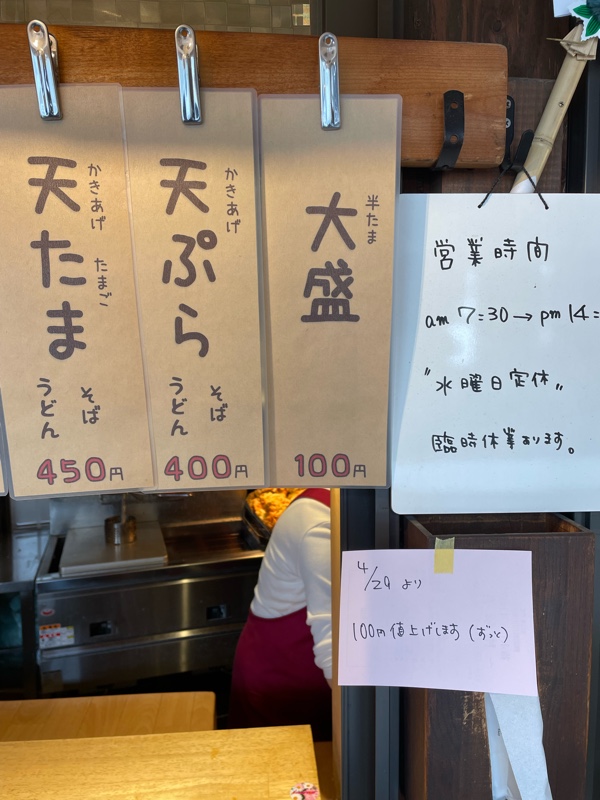 かきあげ たまご
天たま
そば
うどん
450円
かきあげ
天ぷら
そば
うどん
400円
半たま
大盛
100円
営業時間
am 7:30→pm 14:
"水曜日定休"
臨時休業あります。
4/29 より
100円値上げします(ずっと)